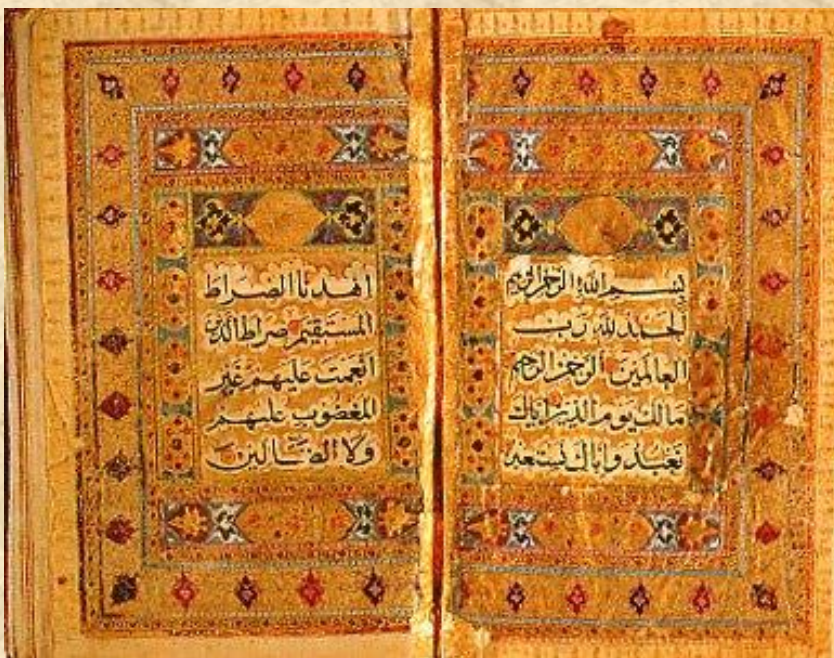 بسم الله الرحمن الرحيم
الحمد لله رب
العالمين الرحمن الرحيم
مالك يوم الدين اياك
نعبد واياك نستعين
اهدنا الصراط
المستقيم صراط الذين
انعمت عليهم غير
المغضوب عليهم
ولا الضالين